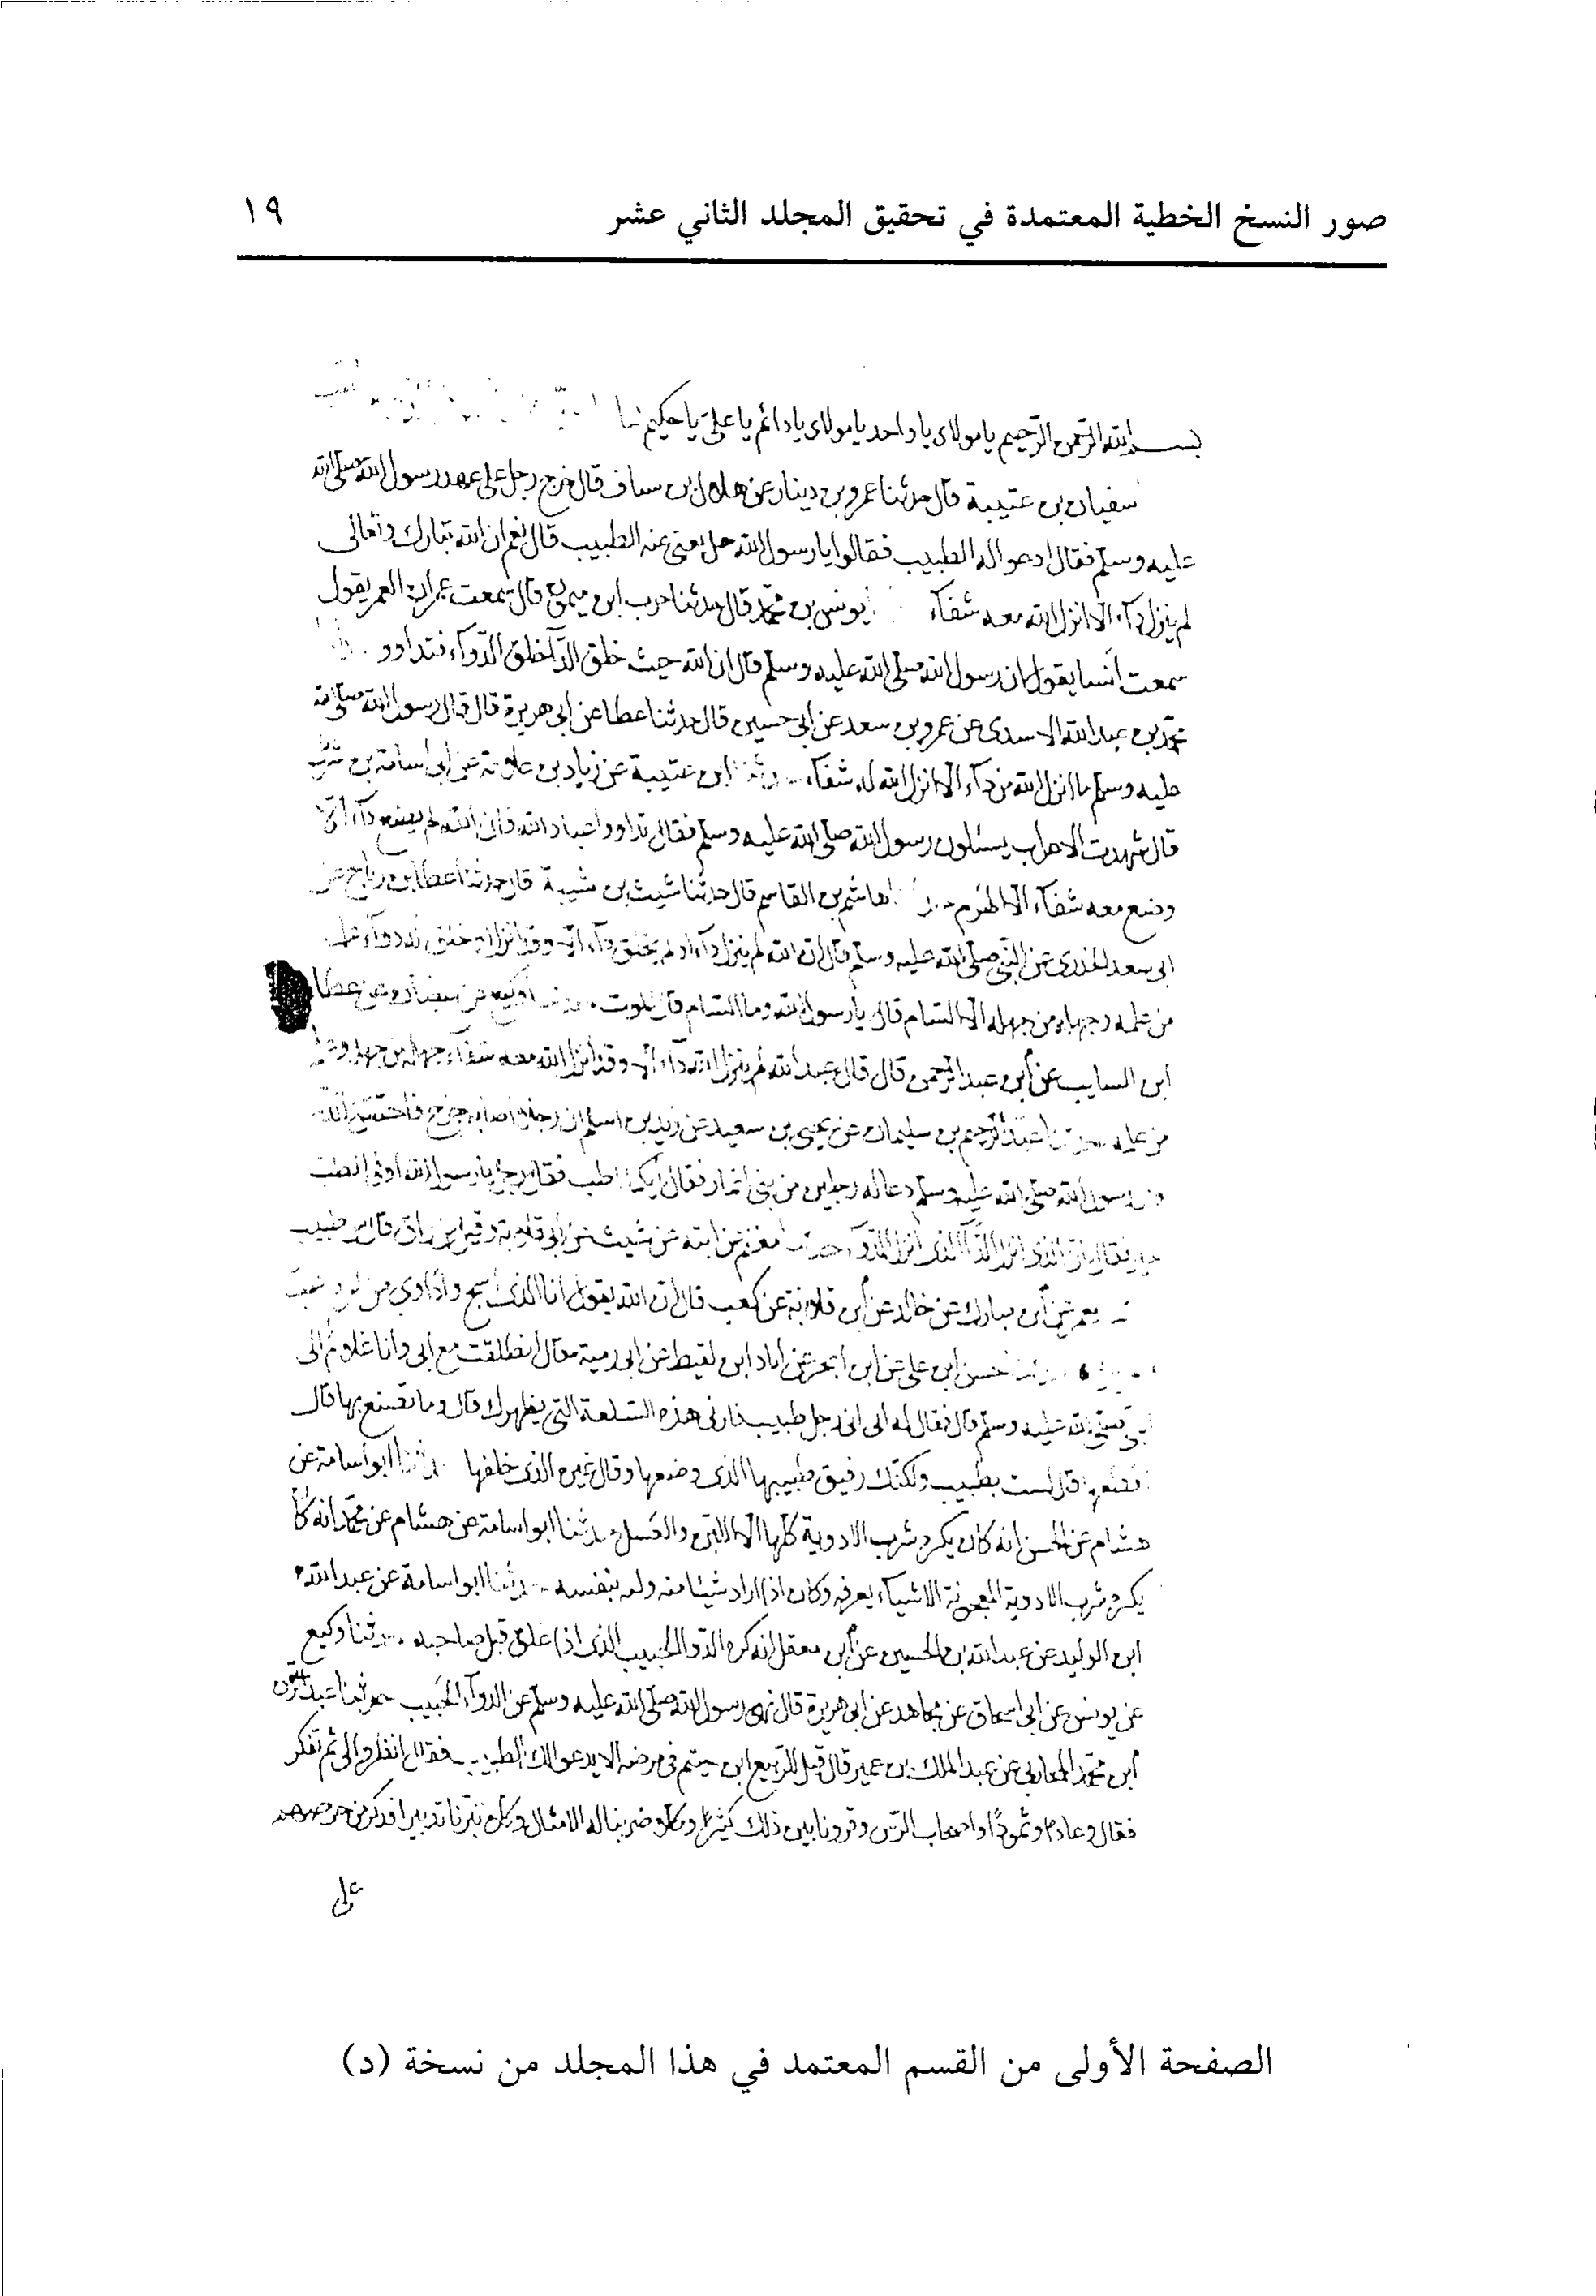 صور النسخ الخطية المعتمدة في تحقيق المجلد الثاني عشر ١٩
بسم الله الرحمن الرحيم يا مولاى يا واحد يا مولاى يا دائم يا على يا حكيم
سفيان بن عتيبة قال حدثنا عمرو بن دينار عن هلال بن يساف قال خرج رجل على عهد رسول الله صلى الله
عليه وسلم فقال ادعوا له الطبيب فقالوا يا رسول الله هل يغنى عنه الطبيب قال نعم ان الله تبارك وتعالى
لم ينزل دآء الا انزل الله معه شفآء يونس بن محمد قال حدثنا حرب ابن ميمون قال سمعت عمران العمر يقول
سمعت أنسا يقول ان رسول الله صلى الله عليه وسلم قال ان الله حيث خلق الدآ خلق الدوآء فتداوو
محمد بن عبد الله الاسدى عن عمرو بن سعد عن ابى حسين قال حدثنا عطا عن ابى هريرة قال قال رسول الله صلى الله
عليه وسلم ما انزل الله من دآء الا انزل الله له شفآء ابن عتيبة عن زياد بن علاقة عن ابى اسامة بن
قال شهدت الاعراب يسئلون رسول الله صلى الله عليه وسلم فقال تداووا عباد الله فان الله لم يضع دآء الا
وضع معه شفآء الا الهرم هاشم بن القاسم قال حدثنا شيث بن شيبة قال حدثنا عطا بن
ابى سعد الخدرى عن النبى صلى الله عليه وسلم قال ان الله لم ينزل دآء او لم يخلق دآء الا وقد انزل او خلق له دوآء
من علمه وجهله من جهله الا السام قال يا رسول الله وما السام قال الموت وكيع عن سفيان عن عطا
ابن السايب عن ابى عبد الرحمن قال قال عبد الله لم ينزل الله دآء الا وقد انزل الله معه شفآء جهله من جهله
من علمه عبد الرحيم بن سليمان عن يحيى بن سعيد عن زيد بن اسلم ان رجلا اصابه جرح فاحتقن
رسول الله صلى الله عليه وسلم دعا له رجلين من بنى انمار فقال اطب فقال رجل يا رسول الله اوفى الطب
فقال ان الذى انزل الدآ الذى انزل الدوآ
يعمر عن ابن مبارك عن خالد عن ابى قلابة عن كعب قال ان الله يقول انا الذى اسح واداوي
حسن ابن على عن ابن ابجر عن اياد ابن لقيط عن ابى رمية قال انطلقت مع ابى وانا غلام الى
الله عليه وسلم قال فقال له ابى انى رجل طبيب فارنى هذه السلعة التى بظهرك قال وما تصنع بها قال
قال لست بطبيب ولكنك رفيق طبيبها الذى وضعها وقال غيره الذى خلقها ابو اسامة عن
هشام عن الحسن انه كان يكره شرب الادوية كلها الا اللبن والعسل حدثنا ابو اسامة عن هشام عن محمد انه كان
يكره شرب الادوية المعجونة الا شيآء يعرفه وكان اذا اراد شيئا منه وله بنفسه حدثنا ابو اسامة عن عبد الله
ابن الوليد عن عبد الله بن الحسين عن ابن معقل انه كره الدوا الخبيب الذى اذا غلق قبل صاحبه حدثنا وكيع
عن يونس عن ابى اسحاق عن مجاهد عن ابى هريرة قال نهى رسول الله صلى الله عليه وسلم عن الدوآء الخبيب حدثنا عبد الرحمن
ابن محمد المحاربى عن عبد الملك بن عمير قال قيل للربيع ابن خيثم فى مرضه الا يدعوا لك الطبيب فقال انظروا لى ثم تفكر
فقال وعادا وثمودا واصحاب الرس وقرونا بين ذلك كثيرا وكلا ضربنا له الامثال وكلا تبرنا تتبيرا فذكر من حرصهم
على
الصفحة الأولى من القسم المعتمد في هذا المجلد من نسخة (د)